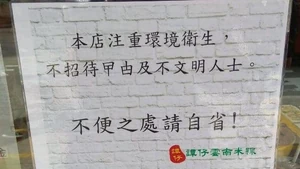 本店注重環境衛生，
不招待曱甴及不文明人士。
不便之處請自省！
譚仔 譚仔雲南米線